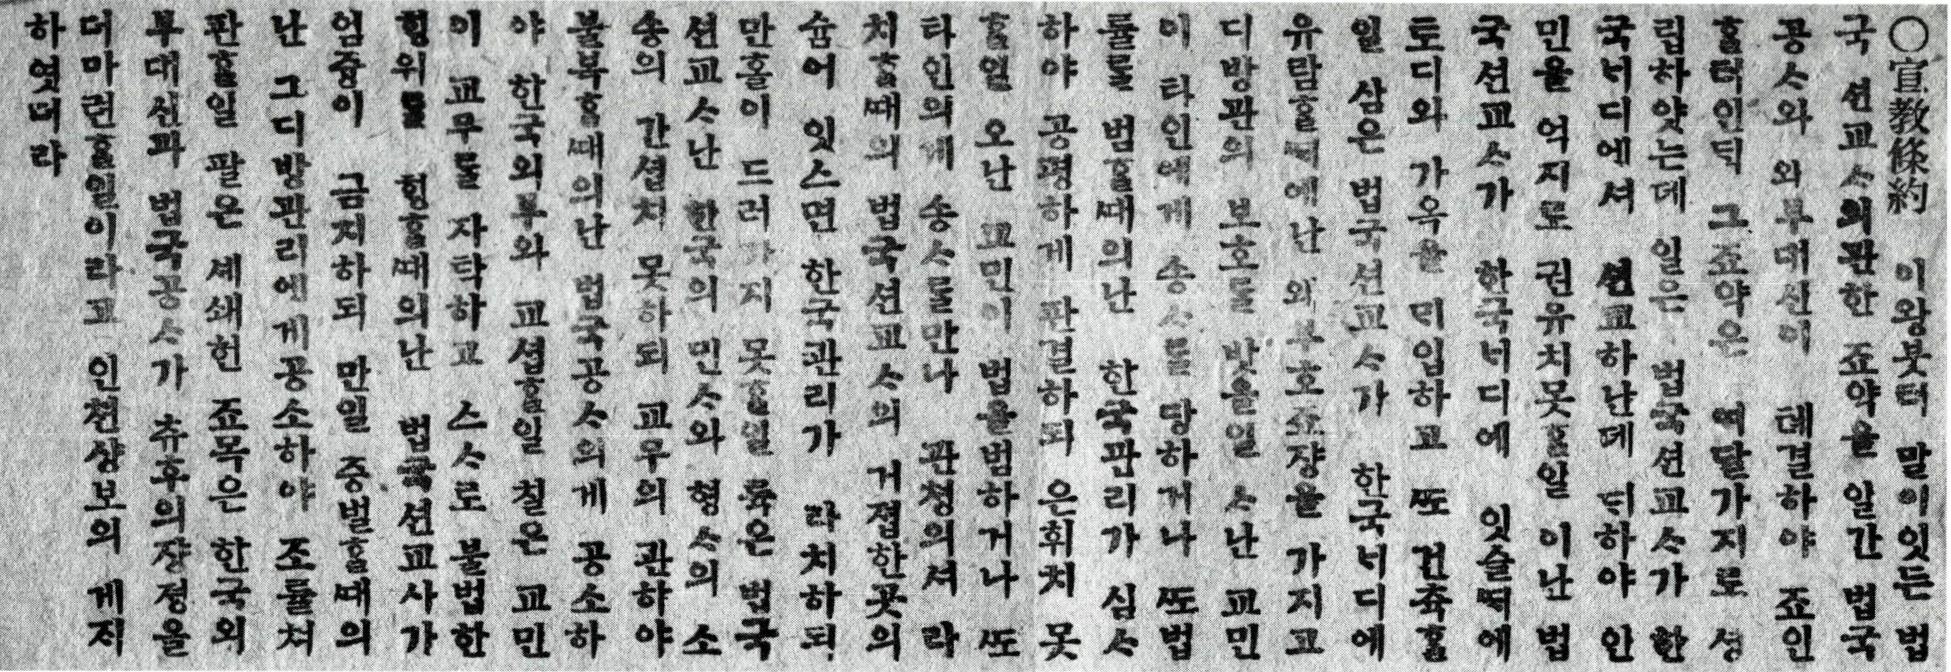 ○宣教條約 이왕붓터 말이잇든 법
국 션교ᄉ의관한 죠약을 일간 법국
공ᄉ와 외부대신이 톄결하야 죠인
ᄒᆞᆯ터인ᄃᆡ 그죠약은 여달가지로 셩
립하얏는데 일은 법국션교ᄉ가 한
국ᄂᆡ디에셔 션교하난데 ᄃᆡ하야 안
민을 억지로 권유치못ᄒᆞᆯ일 이난 법
국션교ᄉ가 한국ᄂᆡ디에 잇슬ᄯᅢ에
토디와 가옥을 ᄆᆡ입하고 ᄯᅩ 건츅ᄒᆞᆯ
일 삼은 법국션교ᄉ가 한국ᄂᆡ디에
유람ᄒᆞᆯᄯᅢ에난 외부호죠쟝을 가지고
디방관의 보호를 밧을일 ᄉ난 교민
이 타인에게 송ᄉ를 당하거나 ᄯᅩ법
률를 범ᄒᆞᆯ때의난 한국판리가 심ᄉ
하야 공평하게 판결하되 은휘치 못
ᄒᆞᆯ일 오난 교민이 법을범하거나 ᄯᅩ
타인의게 송ᄉ를만나 관쳥의셔 라
치ᄒᆞᆯ때의 법국션교ᄉ의 거졉한곳의
숨어 잇스면 한국관리가 라치하되
만홀이 드러가지 못ᄒᆞᆯ일 륙은 법국
션교ᄉ난 한국의 민ᄉ와 형ᄉ의 소
송의 간셥치 못하되 교우의 관하야
불복ᄒᆞᆯ때의난 법국공ᄉ의게 공소하
야 한국외부와 교셥ᄒᆞᆯ일 칠은 교민
이 교무를 자탁하고 스ᄉ로 불법한
ᄒᆡᆼ위를 ᄒᆡᆼᄒᆞᆯ때의난 법국션교사가
엄즁이 금지하되 만일 즁벌ᄒᆞᆯ때의
난 그디방관리에게공소하야 조률쳐
판ᄒᆞᆯ일 팔은 셰쇄헌 죠목은 한국외
부대신과 법국공ᄉ가 츄후의쟝졍을
더마련ᄒᆞᆯ일이라고 인쳔샹보의 게ᄌᆡ
하엿더라